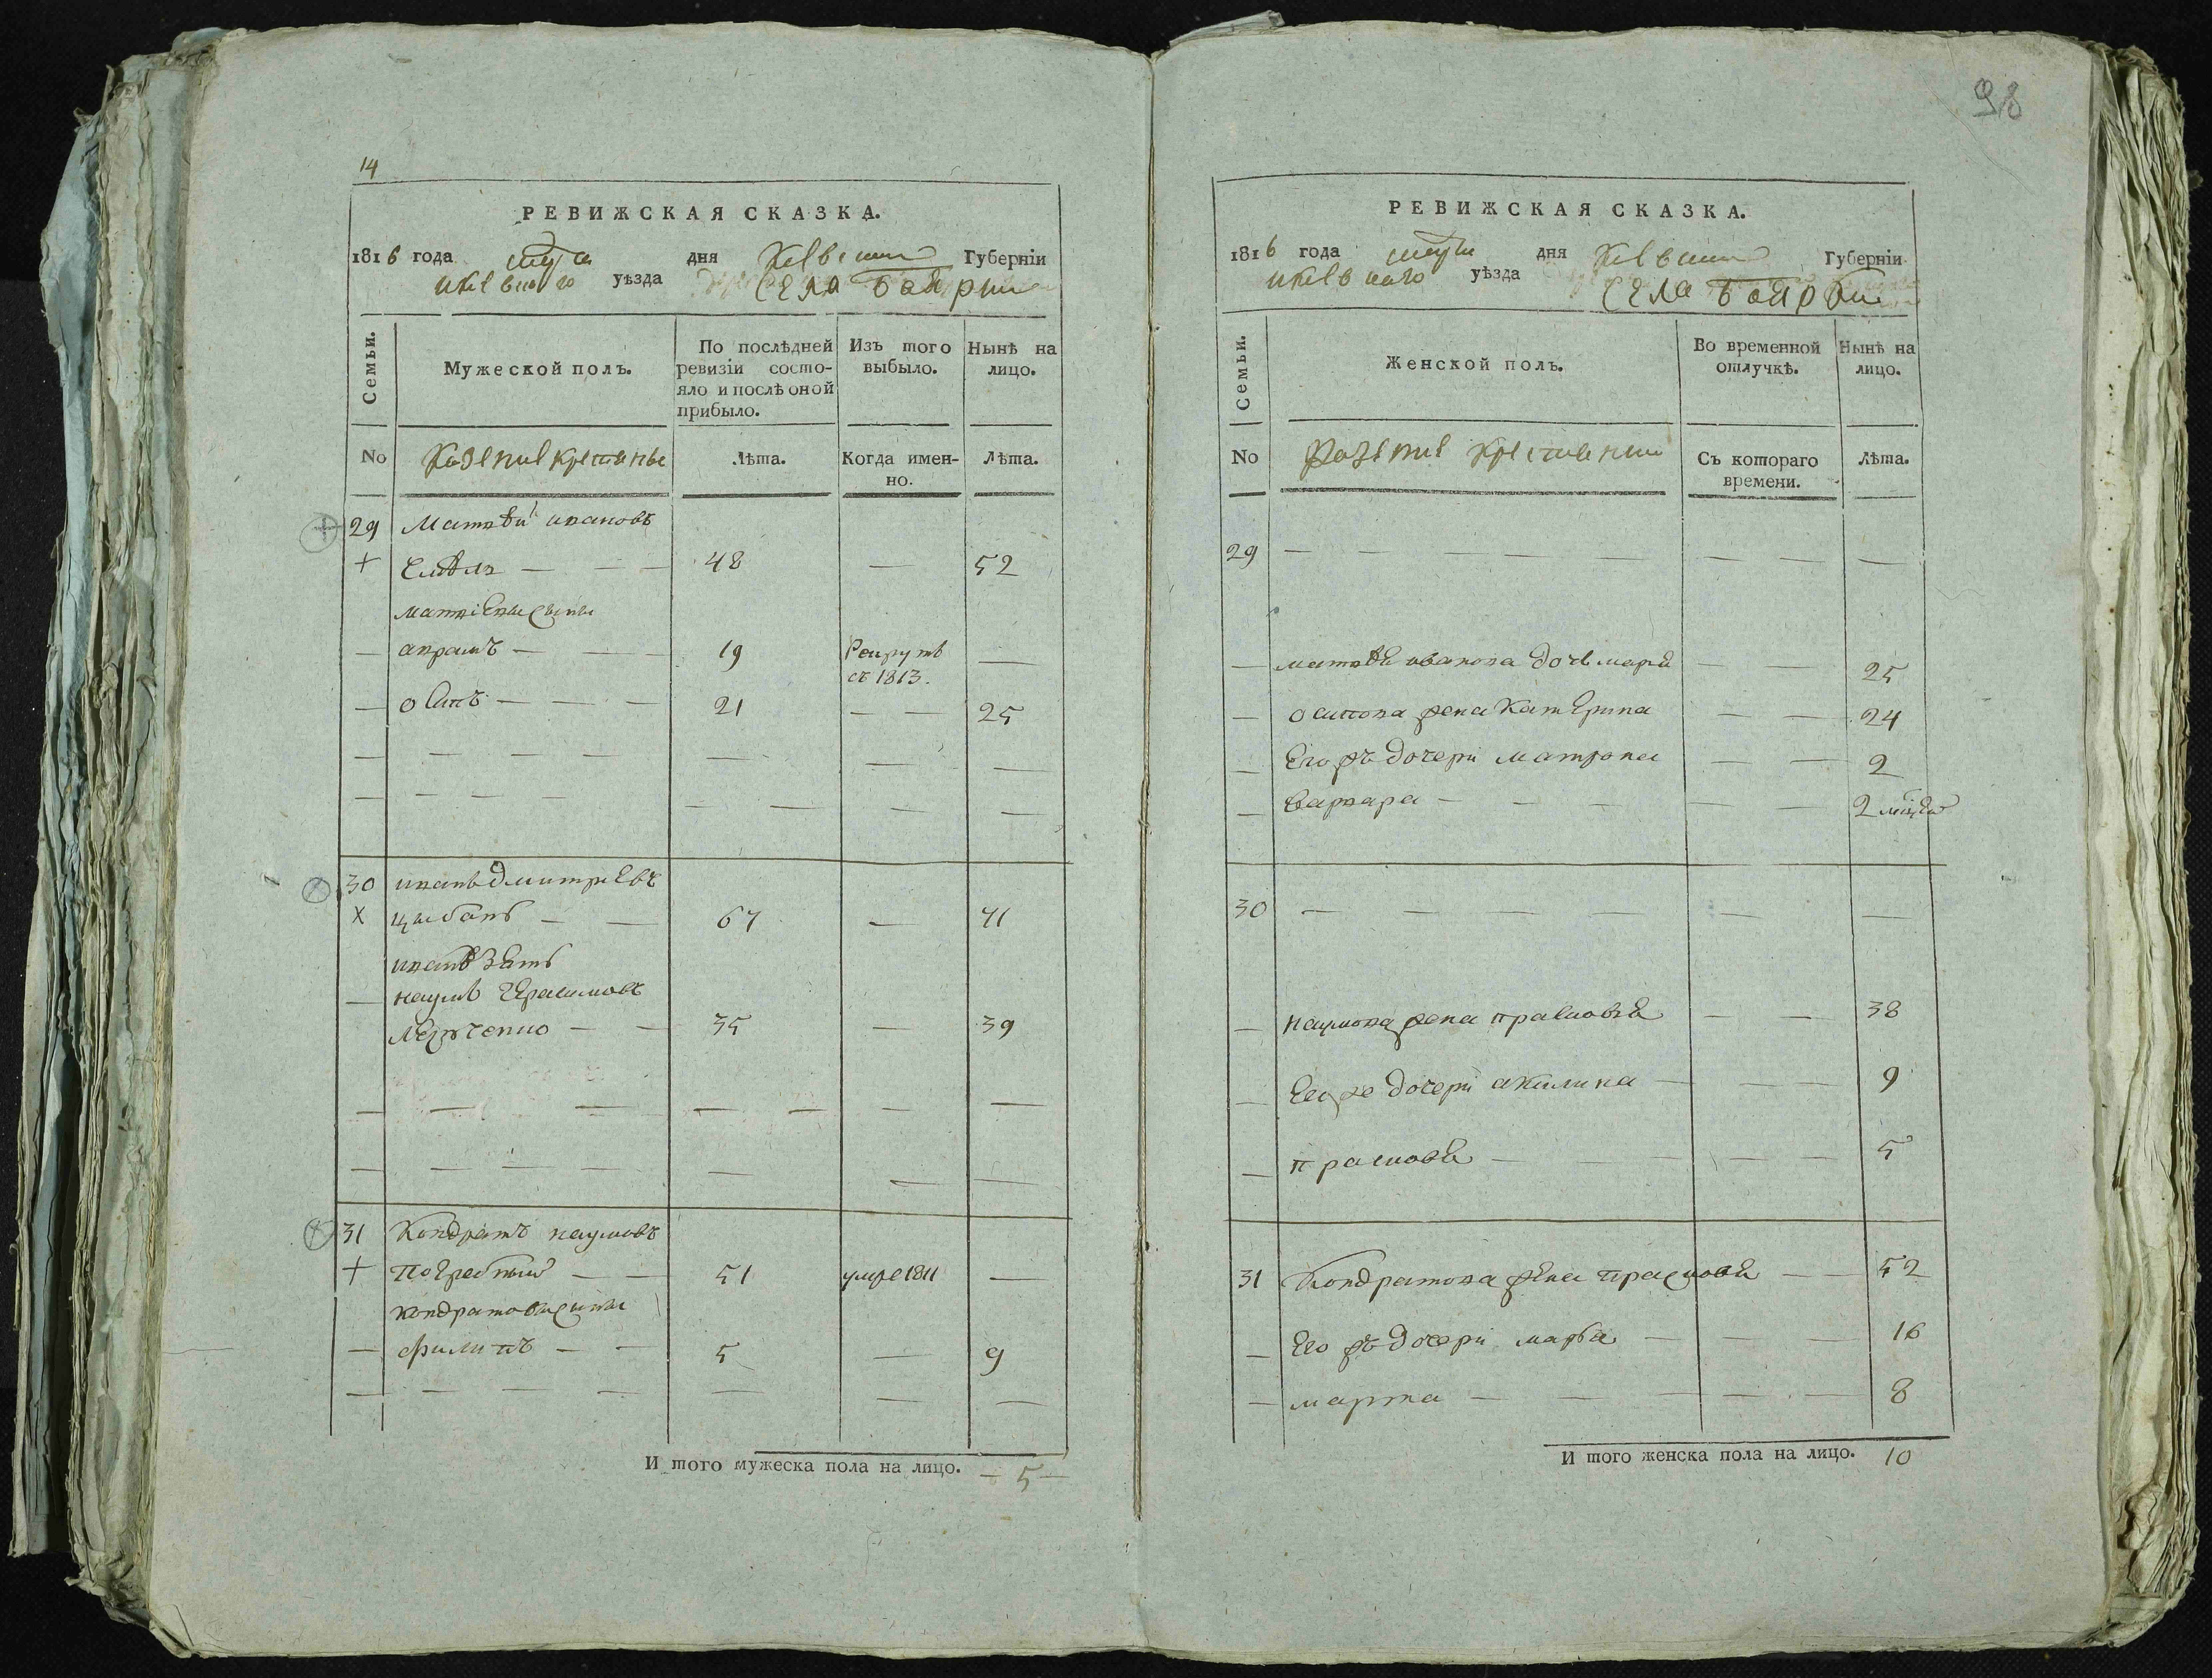 14
РЕВИЖСКАЯ СКАЗКА.
1816 года марта дня Киевской Губерніи
Киевского уѣзда Села Боярки
Семьи.
Мужеской полъ.
По послѣдней ревизіи состо-
яло и послѣ оной
прибыло.
Изъ того
выбыло.
Нынѣ на
лицо.
No
Казенніе крестьяне
Лѣта.
Когда имен-
но.
Лѣта.
29 Матвѣй ивановъ
48 — 52
матвіевы сыны
— аврамъ — — 19 Рекрутъ —
съ 1813.
— осипъ — — — 21 — — 25
30 иванъ дмитриевъ
цыбань — — 67 — 71
ивановъ зять
— наумъ герасимовъ
35 — 39
31 Кондратъ наумовъ
Погребный — — 51 умре 1811 —
кондратовы сыны
— филипъ — — 5 — 9
И того мужеска пола на лицо. — 5 —
98
РЕВИЖСКАЯ СКАЗКА.
1816 года марта дня Киевской Губерніи
Киевского уѣзда Села Боярки
Семьи.
Женской полъ.
Во временной
отлучкѣ.
Нынѣ на
лицо.
No
Казенніе крестьянки
Съ котораго
времени.
Лѣта.
29 — — — — — — — —
— матвѣя иванова дочь марія — — 25
— осипова жена катерина — — 24
— Его жъ дочери матрона — — 2
— варвара — — — — — 2 мѣсяца
30 — — — — — —
— наумова жена прасковія — — 38
— Его же дочери акилина — — — 9
— прасковія — — — — — 5
31 Кондратова жена прасковія — — 52
— Его жъ дочери марія — — — 16
— марфа — — — — — 8
И того женска пола на лицо. 10